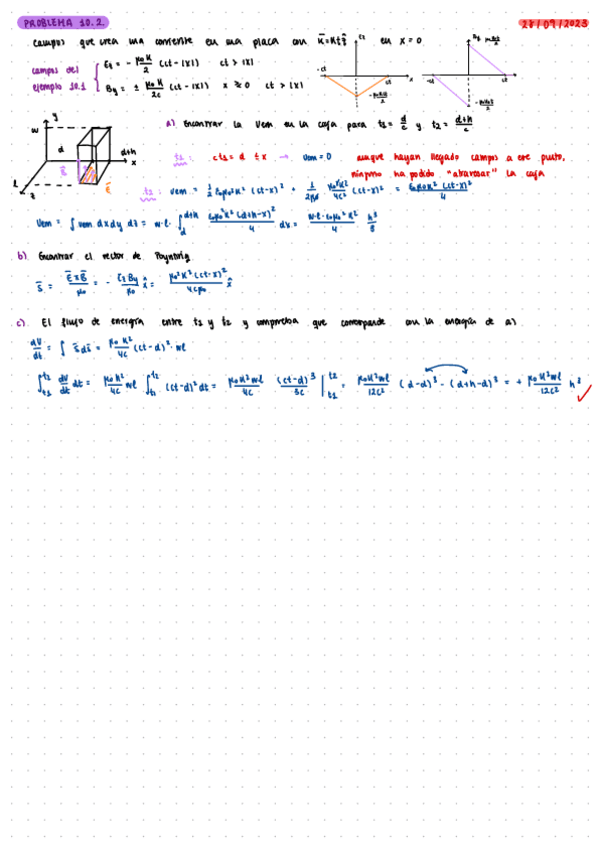 PROBLEMA 10.2.
27/09/2023
campos que crea una corriente en una placa con K̄=Ktẑ en x=0
campos del ejemplo 10.1
Ez = - μ₀K/2 (ct-|x|) ct > |x|
By = ± μ₀K/2c (ct-|x|) x ≷ 0 ct > |x|
a) Encontrar la Uem en la caja para t₁ = d/c y t₂ = (d+h)/c
t₁: ct₁ = d ≤ x → Uem = 0
aunque hayan llegado campos a ese punto,
ninguno ha podido "atravesar" la caja
t₂: uem = 1/2 ε₀μ₀²K² (ct-x)² + 1/2μ₀ μ₀²K²/4c² (ct-x)² = ε₀μ₀K² (ct-x)²/4
Uem = ∫ uem dx dy dz = w·l· ∫_d^{d+h} ε₀μ₀²K² (d+h-x)²/4 dx = w·l·ε₀μ₀²K²/4 h³/3
b) Encontrar el vector de Poynting
S̄ = ĒxB̄/μ₀ = - EzBy/μ₀ x̂ = μ₀²K²(ct-x)²/4cμ₀ x̂
c) El flujo de energía entre t₁ y t₂ y comprueba que corresponde con la energía de a)
dU/dt = ∫ S̄ ds̄ = μ₀K²/4c (ct-d)² · wl
∫_{t₁}^{t₂} dU/dt dt = μ₀K²/4c wl ∫_{t₁}^{t₂} (ct-d)² dt = μ₀K²wl/4c (ct-d)³/3c |_{t₁}^{t₂} = μ₀K²wl/12c² (d-d)³ - (d+h-d)³ = + μ₀K²wl/12c² h³ ✓